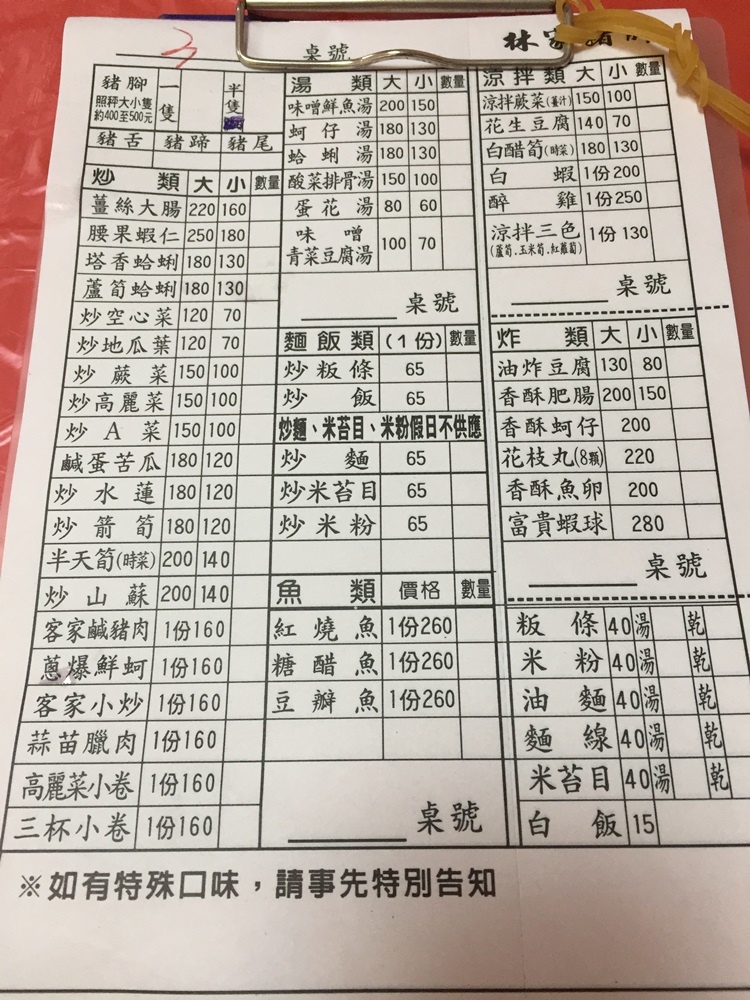 3 桌號
林家
豬腳 照秤大小隻 約400至500元 一隻 半隻
豬舌 豬蹄 豬尾
炒類 大 小 數量
薑絲大腸 220 160
腰果蝦仁 250 180
塔香蛤蜊 180 130
蘆筍蛤蜊 180 130
炒空心菜 120 70
炒地瓜葉 120 70
炒蕨菜 150 100
炒高麗菜 150 100
炒A菜 150 100
鹹蛋苦瓜 180 120
炒水蓮 180 120
炒箭筍 180 120
半天筍(時菜) 200 140
炒山蘇 200 140
客家鹹豬肉 1份160
蔥爆鮮蚵 1份160
客家小炒 1份160
蒜苗臘肉 1份160
高麗菜小卷 1份160
三杯小卷 1份160
湯類 大 小 數量
味噌鮮魚湯 200 150
蚵仔湯 180 130
蛤蜊湯 180 130
酸菜排骨湯 150 100
蛋花湯 80 60
味噌
青菜豆腐湯 100 70
桌號
麵飯類 (1份) 數量
炒粄條 65
炒飯 65
炒麵、米苔目、米粉假日不供應
炒麵 65
炒米苔目 65
炒米粉 65
魚類 價格 數量
紅燒魚 1份260
糖醋魚 1份260
豆瓣魚 1份260
桌號
涼拌類 大 小 數量
涼拌蕨菜(薑汁) 150 100
花生豆腐 140 70
白醋筍(時菜) 180 130
白蝦 1份200
醉雞 1份250
涼拌三色 1份130
(蘆筍.玉米筍.紅蘿蔔)
桌號
炸類 大 小 數量
油炸豆腐 130 80
香酥肥腸 200 150
香酥蚵仔 200
花枝丸(8顆) 220
香酥魚卵 200
富貴蝦球 280
桌號
粄條 40 湯 乾
米粉 40 湯 乾
油麵 40 湯 乾
麵線 40 湯 乾
米苔目 40 湯 乾
白飯 15
※如有特殊口味，請事先特別告知